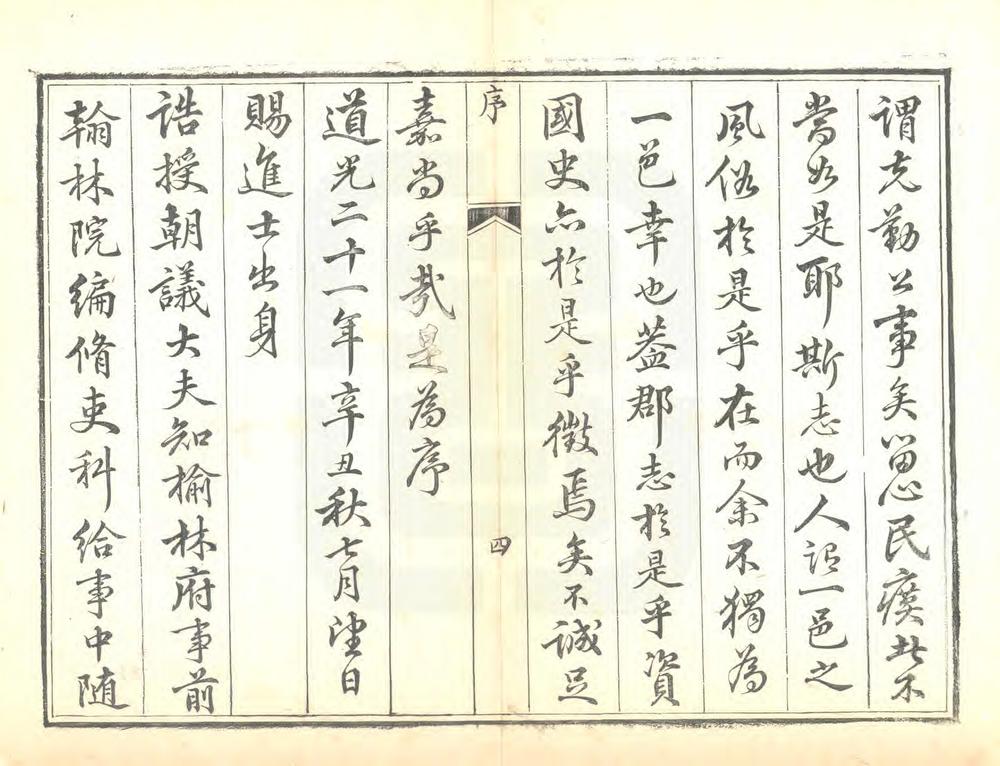 謂克勤公事矣留心民瘼不
當如是耶斯志也人謂一邑之
風俗於是乎在而余不獨為
一邑幸也葢郡志於是乎資
國史亦於是乎徵焉矣不誠足
序
四
嘉尚乎哉是為序
道光二十一年辛丑秋七月望日
賜進士出身
誥授朝議大夫知榆林府事前
翰林院編脩吏科給事中随